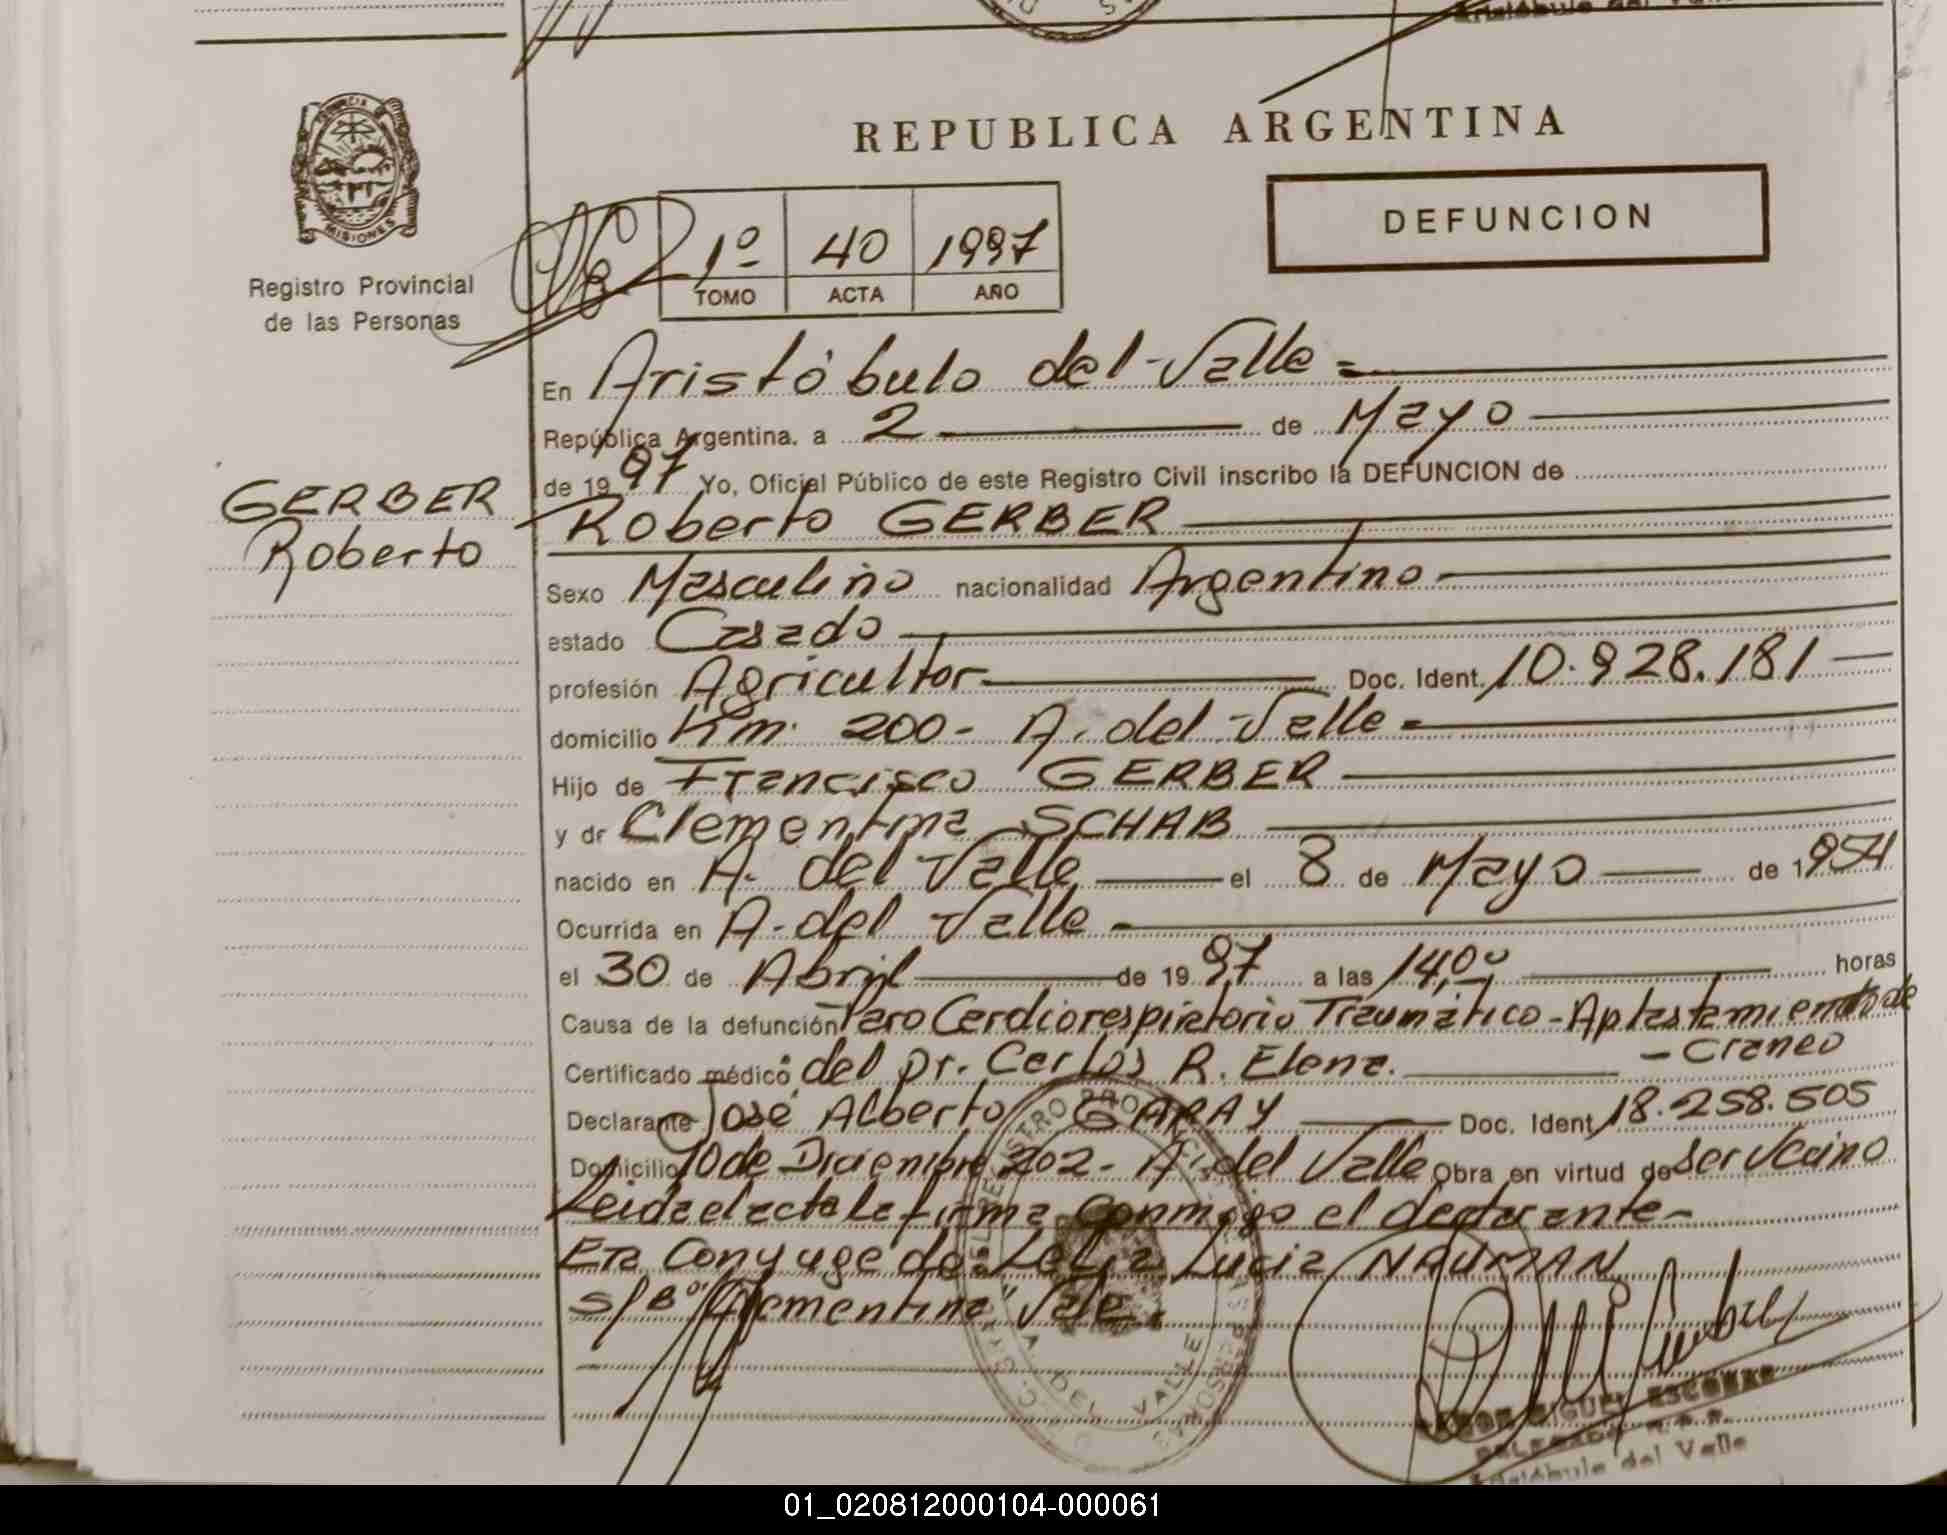 REPUBLICA ARGENTINA
PROVINCIA DE
MISIONES
DEFUNCION
1º 40 1997
TOMO ACTA AÑO
Registro Provincial
de las Personas
En Aristóbulo del Valle =
República Argentina, a 2 de Mayo
de 1997 Yo, Oficial Público de este Registro Civil inscribo la DEFUNCION de
GERBER
Roberto
Roberto GERBER
Sexo Masculino nacionalidad Argentino
estado Casado
profesión Agricultor Doc. Ident. 10.928.181
domicilio Km. 200 - A. del Valle =
Hijo de Francisco GERBER
y de Clementina SCHAB
nacido en A. del Valle el 8 de Mayo de 1954
Ocurrida en A. del Valle
el 30 de Abril de 1997 a las 14,00 horas
Causa de la defunción Paro Cardiorespiratorio Traumático - Aplastamiento de
- Craneo
Certificado médico: del Dr. Carlos R. Elena.
Declarante José Alberto GARAY Doc. Ident 18.258.505
Domicilio 10 de Diciembre 202 - A. del Valle Obra en virtud de ser Vecino
Leida el acta la firma Conmigo el declarante -
Era Conyuge de: Lucia NAUMAN
S/Bº Clementina Vale.
REGISTRO PROVINCIAL DE LAS PERSONAS
DEL VALLE
MIGUEL ESCOBAR
DELEGADO R.P.P.
Aristóbulo del Valle
01_020812000104-000061